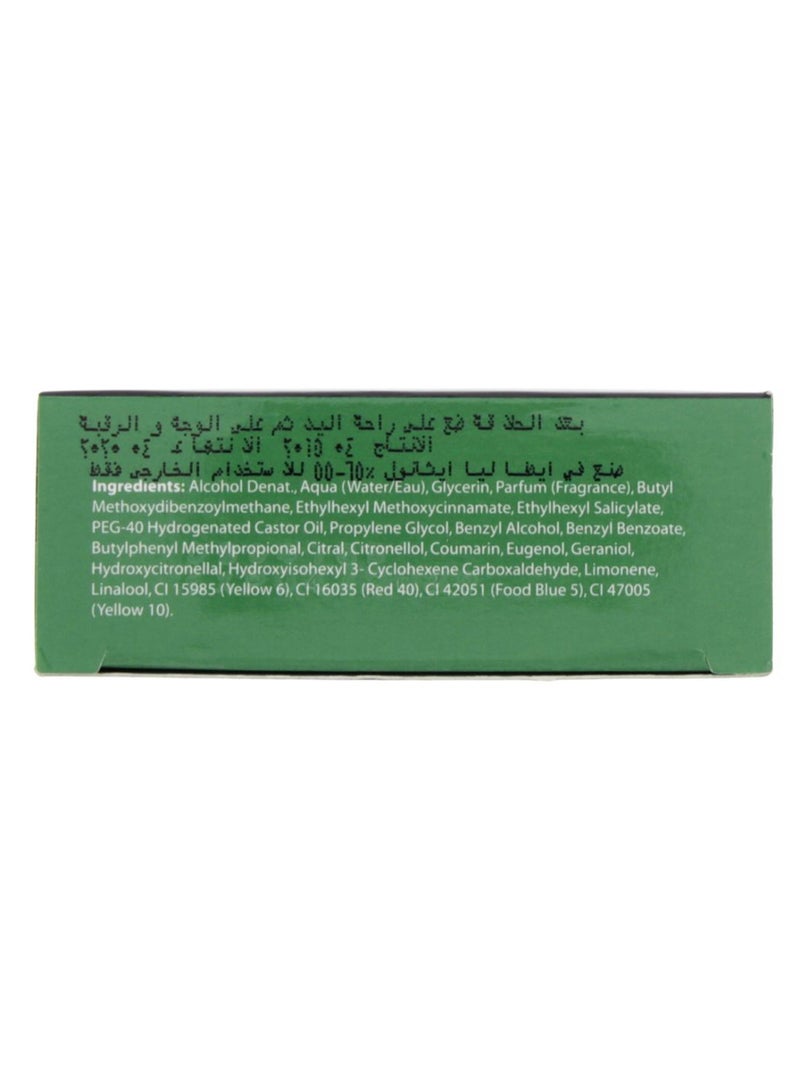 بعد الحلاقة ضع على راحة اليد ثم على الوجه و الرقبة
الانتاج ٠٤ ٢٠١٥ الانتهاء ٠٤ ٢٠٢٠
صنع في ايطاليا ايثانول ٪٦٥-٥٥ للاستخدام الخارجى فقط
Ingredients: Alcohol Denat., Aqua (Water/Eau), Glycerin, Parfum (Fragrance), Butyl
Methoxydibenzoylmethane, Ethylhexyl Methoxycinnamate, Ethylhexyl Salicylate,
PEG-40 Hydrogenated Castor Oil, Propylene Glycol, Benzyl Alcohol, Benzyl Benzoate,
Butylphenyl Methylpropional, Citral, Citronellol, Coumarin, Eugenol, Geraniol,
Hydroxycitronellal, Hydroxyisohexyl 3- Cyclohexene Carboxaldehyde, Limonene,
Linalool, CI 15985 (Yellow 6), CI 16035 (Red 40), CI 42051 (Food Blue 5), CI 47005
(Yellow 10).